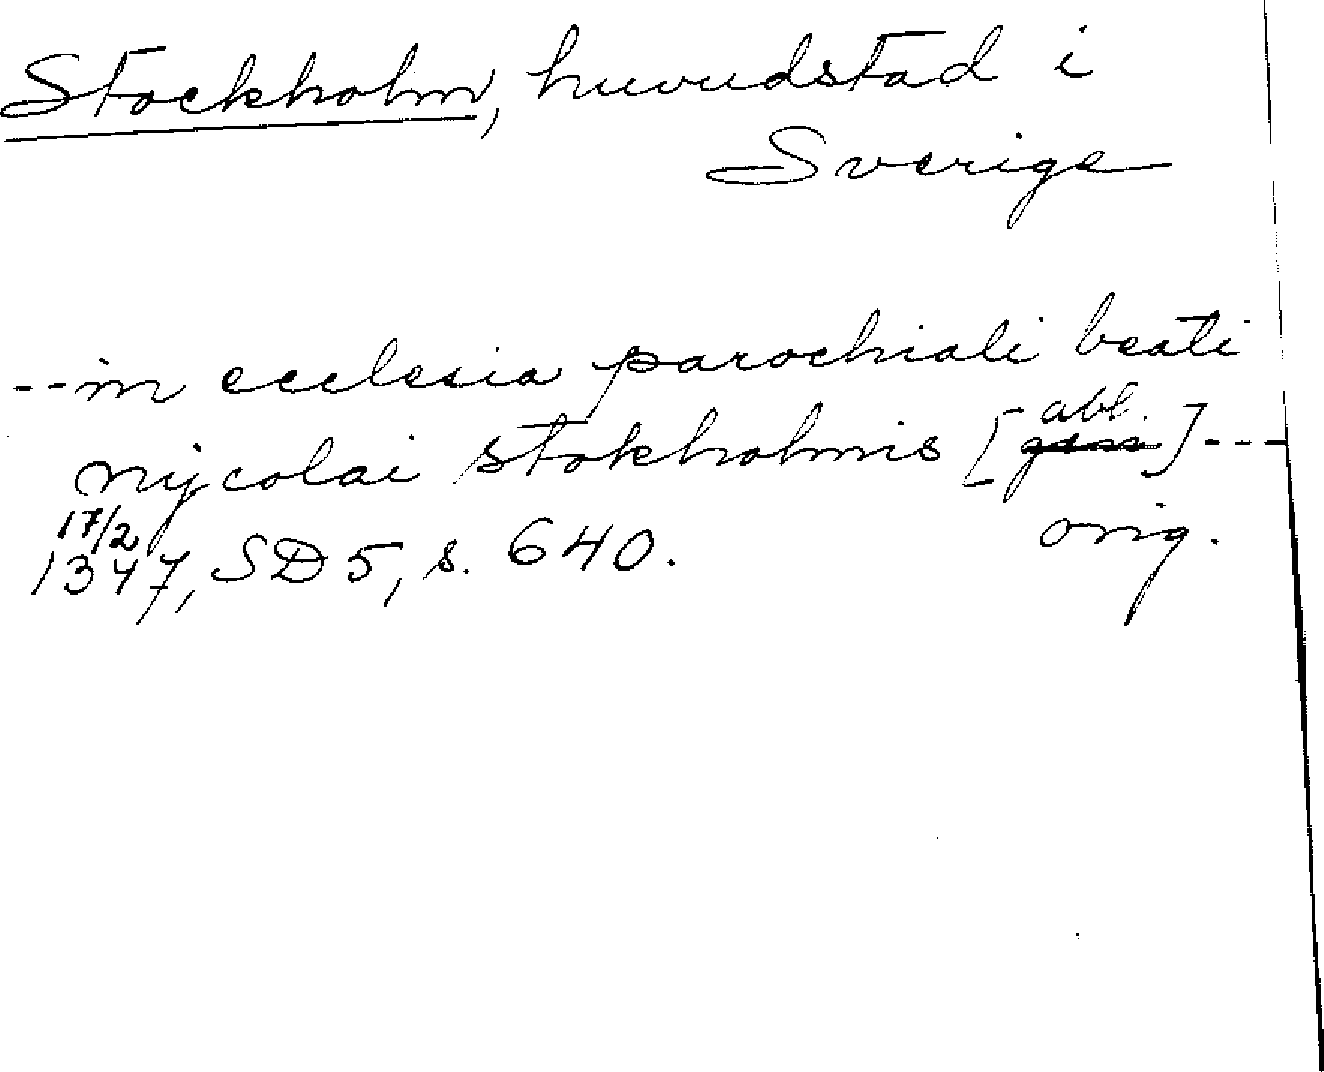 Stockholm, huvudstad i
Sverige
--in ecclesia parochiali beati
nycolai stokholmis [abl.]---
17/2
1347, SD 5, s. 640. orig.